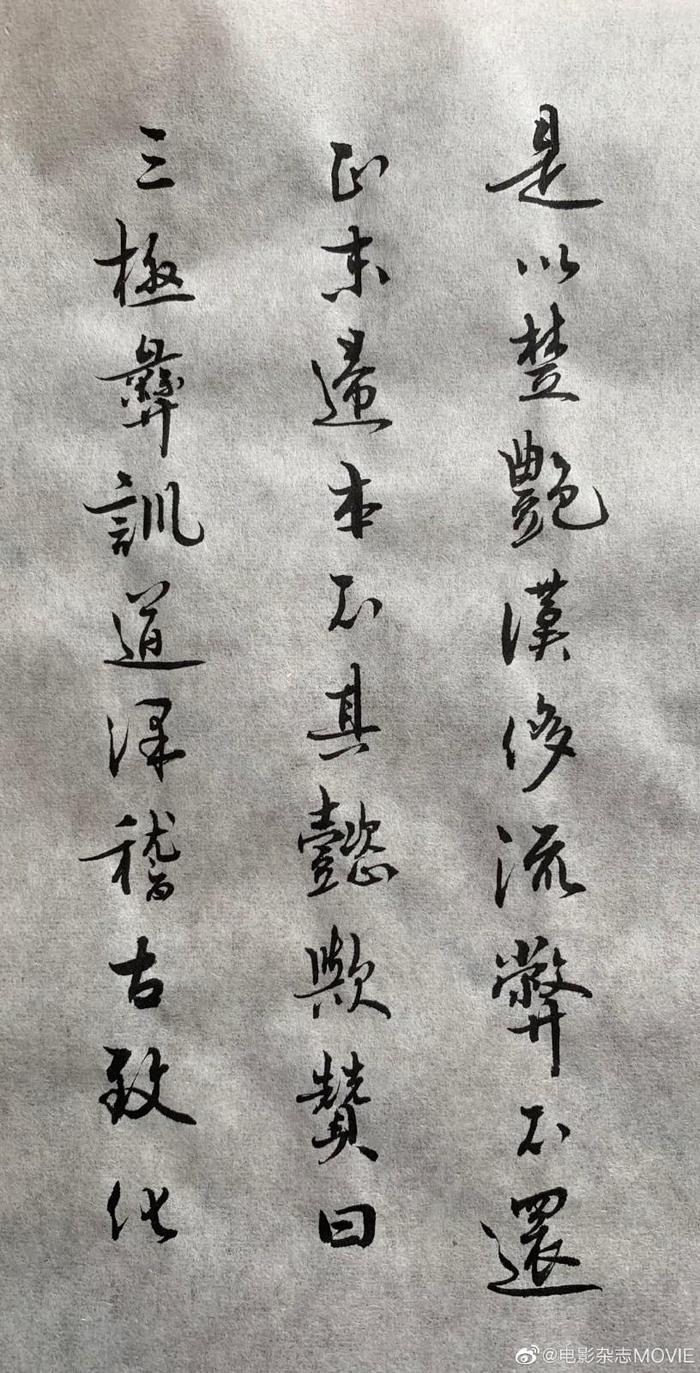 是以楚艷漢侈流弊不還
正末歸本不其懿歟贊曰
三極彝訓道深稽古致化
@电影杂志MOVIE